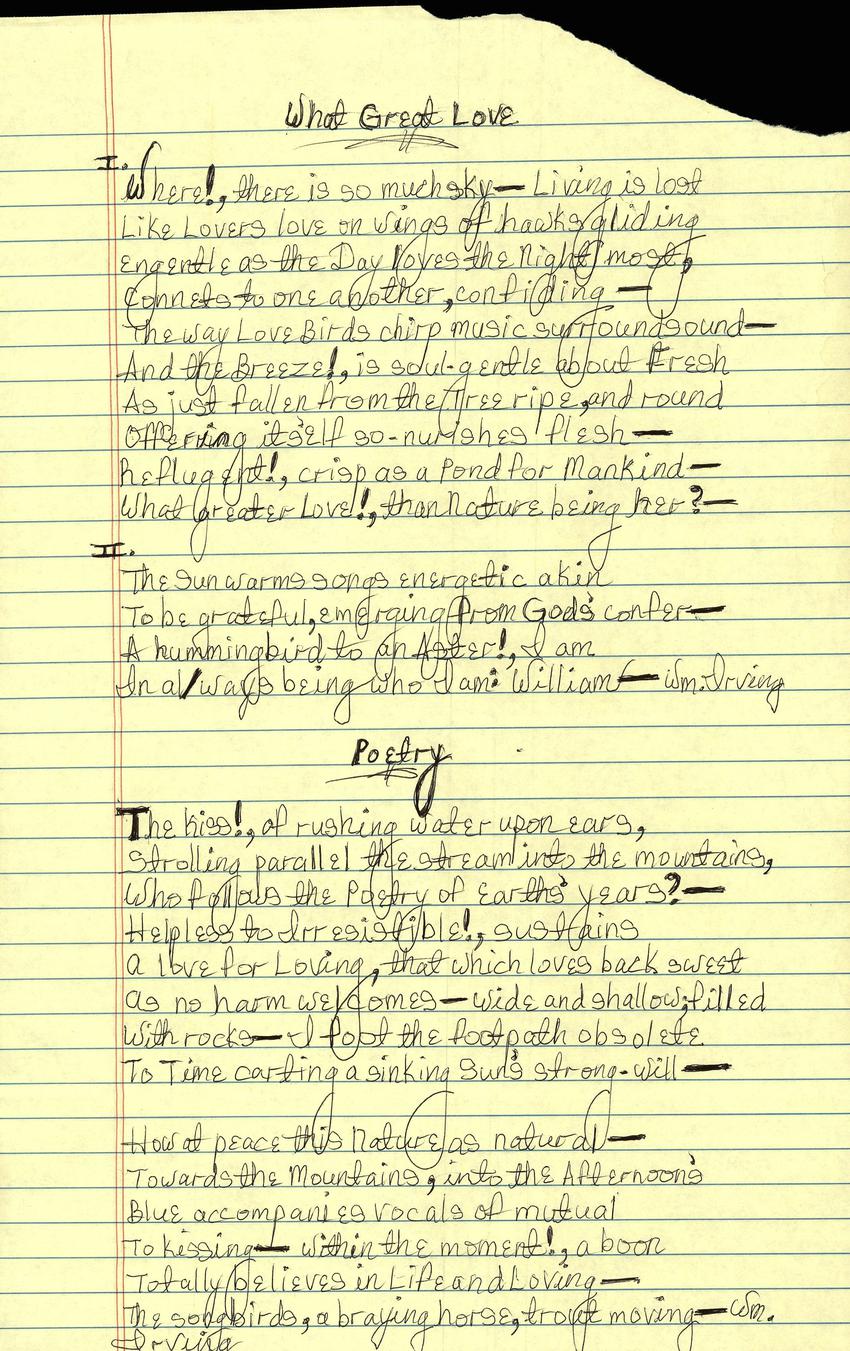 What Great Love
I.
Where!, there is so much sky— Living is lost
Like Lovers love on wings of hawks gliding
engentle as the Day loves the Night most,
Connets to one another, confiding —
The way Love Birds chirp music surroundsound—
And the Breeze!, is soul-gentle about Fresh
As just fallen from the Tree ripe, and round
Offering itself so-nurishes flesh—
Reflugent!, crisp as a Pond for Mankind—
What greater Love!, than Nature being her?—
II.
The sun warms songs energetic akin
To be grateful, emerging from God's confer—
A hummingbird to an Aster!, I am
In always being who I am: William— Wm. Irving
Poetry
The kiss!, of rushing water upon ears,
Strolling parallel the stream into the mountains,
Who follows the Poetry of Earths' years?—
Helpless to Irresistible!, sustains
a love for Loving, that which loves back sweet
as no harm welcomes— wide and shallow; filled
With rocks— I foot the footpath obsolete
To Time carting a sinking Sun's strong-will—
How at peace this Nature, as natural—
Towards the Mountains, into the Afternoon's
Blue accompanies vocals of mutual
To kissing— within the moment!, a boon
Totally believes in Life and Loving—
The songbirds, a braying horse, trout moving— Wm.
Irving